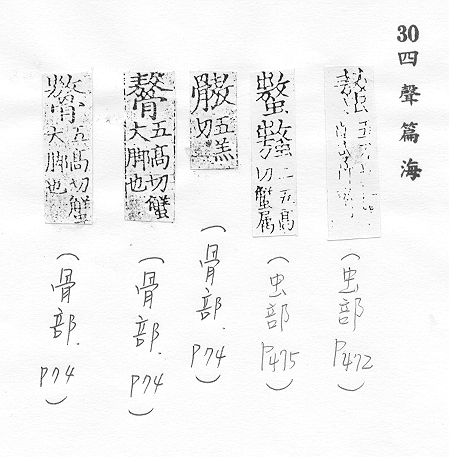 30
四聲篇海
(虫部 P472)
二五高
切蟹属
(虫部 P475)
五羔
切
(骨部. P74)
五高切蟹
大脚也
(骨部. P74)
五高切蟹
大脚也
(骨部. P74)